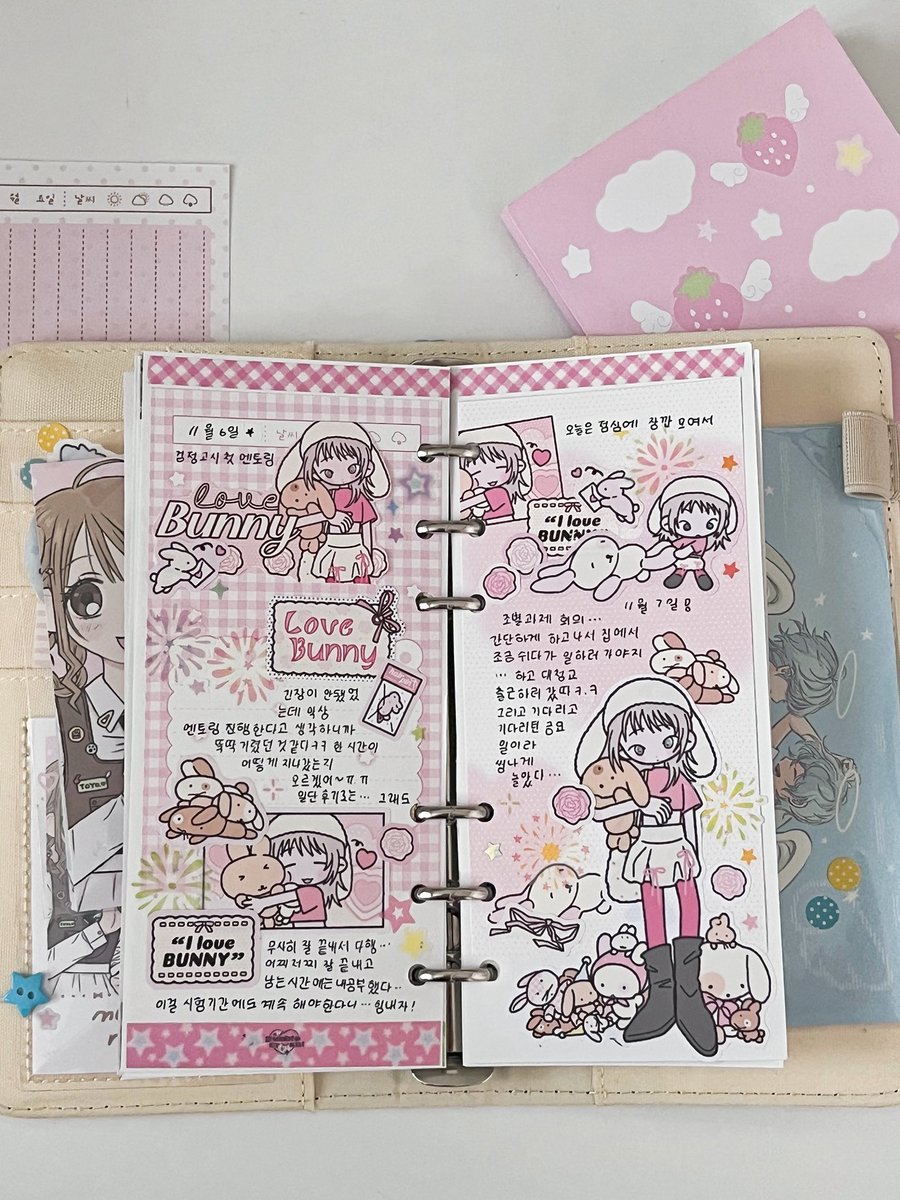 월 요일 날씨
11월 6일 ★ 날씨
검정고시 첫 멘토링
Love
Bunny
Love
Bunny
긴장이 안됐었
는데 막상
멘토링 진행한다고 생각하니까
뚝딱거렸던 것같다ㅋㅋ 한 시간이
어떻게 지나갔는지
모르겠어~ㅠㅠ
일단 후기로는… 그래도
"I love
BUNNY"
무사히 잘 끝내서 다행…
어찌저찌 잘 끝내고
남는 시간에는 내공부했다…
이걸 시험기간에도 계속 해야한다니… 힘내자!
오늘은 점심에 잠깐 모여서
"I love
BUNNY"
11월 7일
조별과제 회의…
간단하게 하고나서 집에서
조금 쉬다가 일하러 가야지
… 하고 대청교
출근하러 갔따ㅋ.ㅋ
그리고 기다리고
기다리던 금요
일이라
씐나게
놀았다…
TOYO